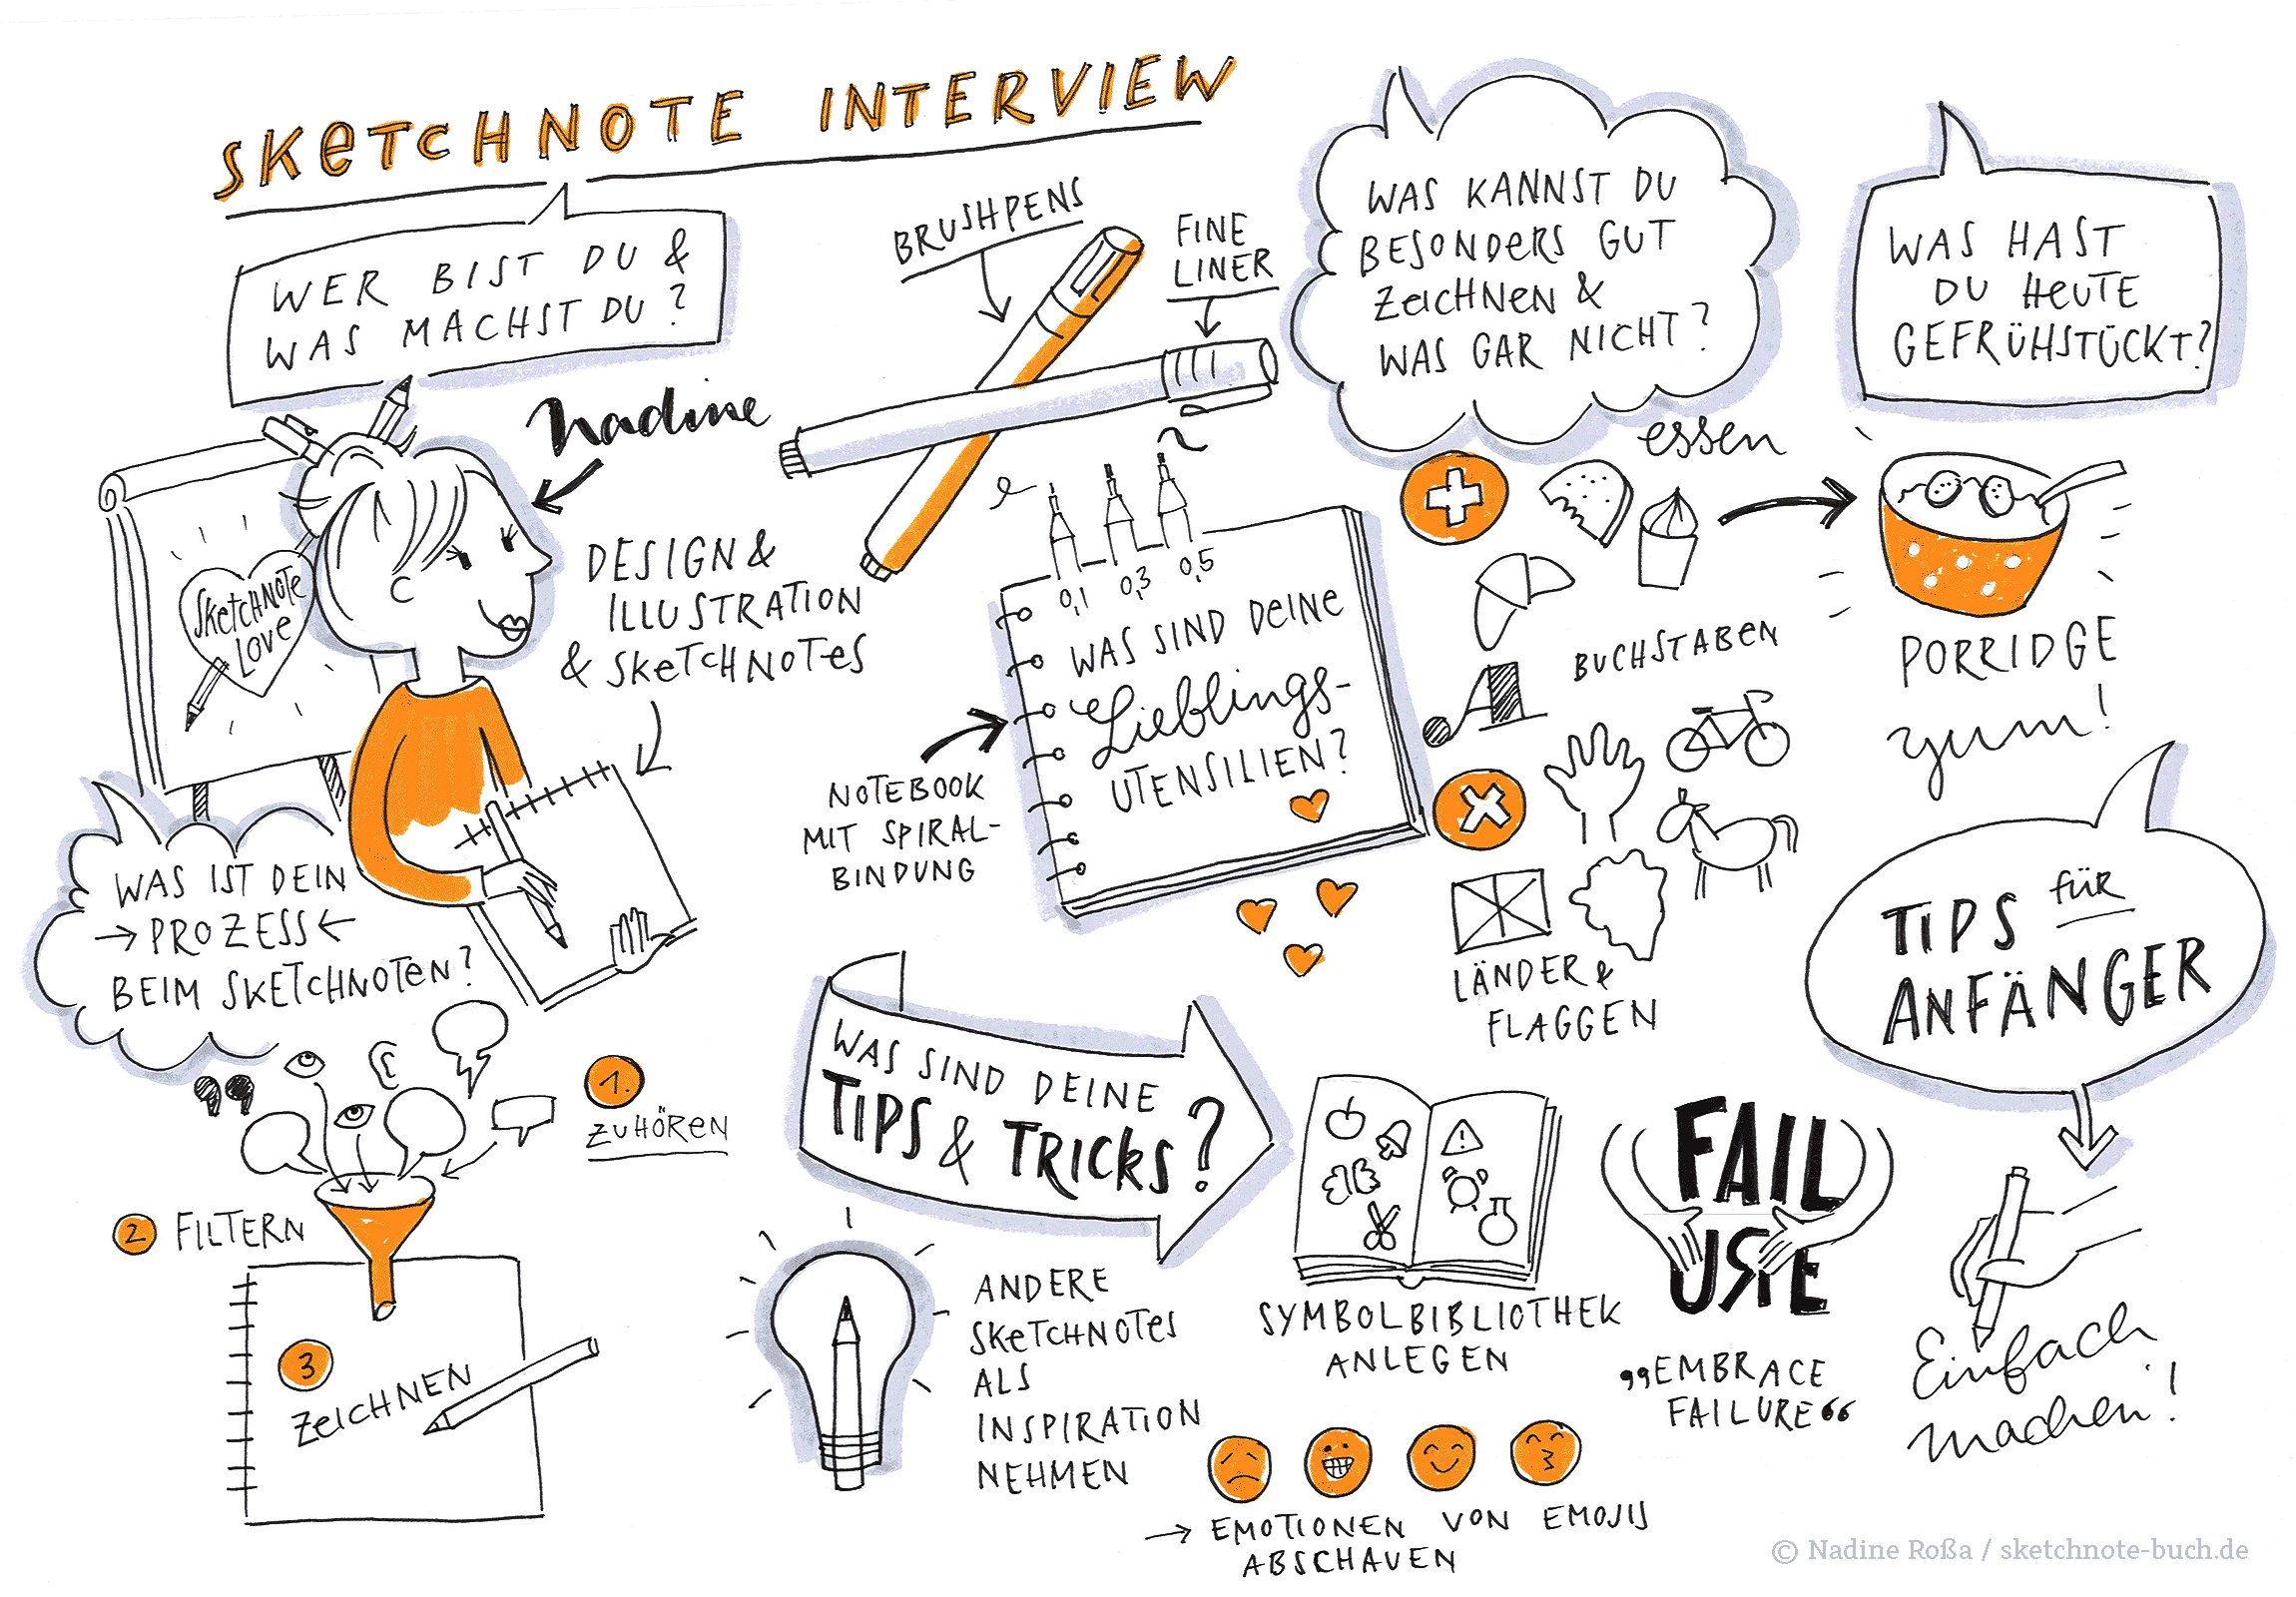 SKETCHNOTE INTERVIEW
WER BIST DU &
WAS MACHST DU?
Nadine
DESIGN &
ILLUSTRATION
& SKETCHNOTES
SKETCHNOTE
LOVE
WAS IST DEIN
→ PROZESS ←
BEIM SKETCHNOTEN?
1.
ZUHÖREN
2 FILTERN
3
ZEICHNEN
BRUSHPENS
FINE
LINER
0,1 0,3 0,5
WAS SIND DEINE
Lieblings-
UTENSILIEN?
NOTEBOOK
MIT SPIRAL-
BINDUNG
WAS KANNST DU
BESONDERS GUT
ZEICHNEN &
WAS GAR NICHT?
essen
BUCHSTABEN
A
LÄNDER &
FLAGGEN
WAS HAST
DU HEUTE
GEFRÜHSTÜCKT?
PORRIDGE
yum!
WAS SIND DEINE
TIPS & TRICKS?
ANDERE
SKETCHNOTES
ALS
INSPIRATION
NEHMEN
SYMBOLBIBLIOTHEK
ANLEGEN
→ EMOTIONEN VON EMOJIS
ABSCHAUEN
FAIL
URE
„EMBRACE
FAILURE“
TIPS für
ANFÄNGER
Einfach
machen!
© Nadine Roßa / sketchnote-buch.de